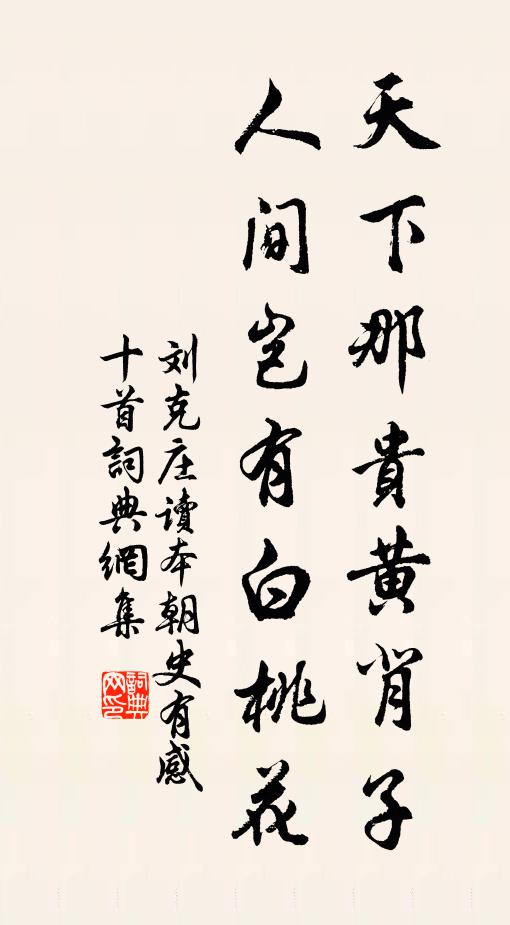 天下那貴黄背子
人间岂有白桃花
刘克庄读本朝史有感
十首詞典網集
詞典
网印